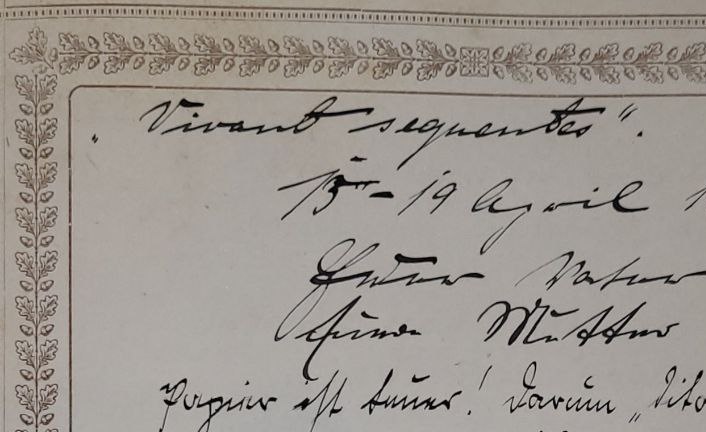 „Vivant sequentes“.
15 - 19 April 1
Euer Vater
Eure Mutter
Papier ist teuer! Darum „dito